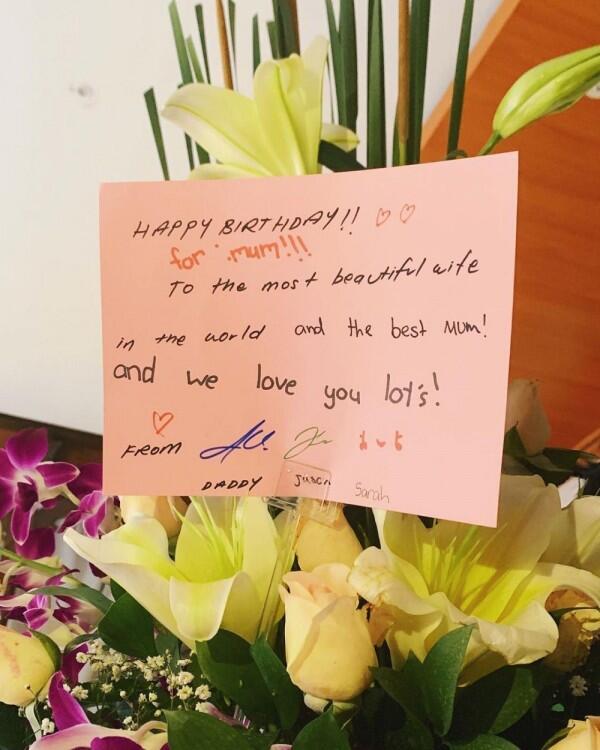 HAPPY BIRTHDAY!! ♡ ♡
for mum!!!
To the most beautiful wife
in the world and the best MUM!
and we love you lot's!
FROM
DADDY Sarah